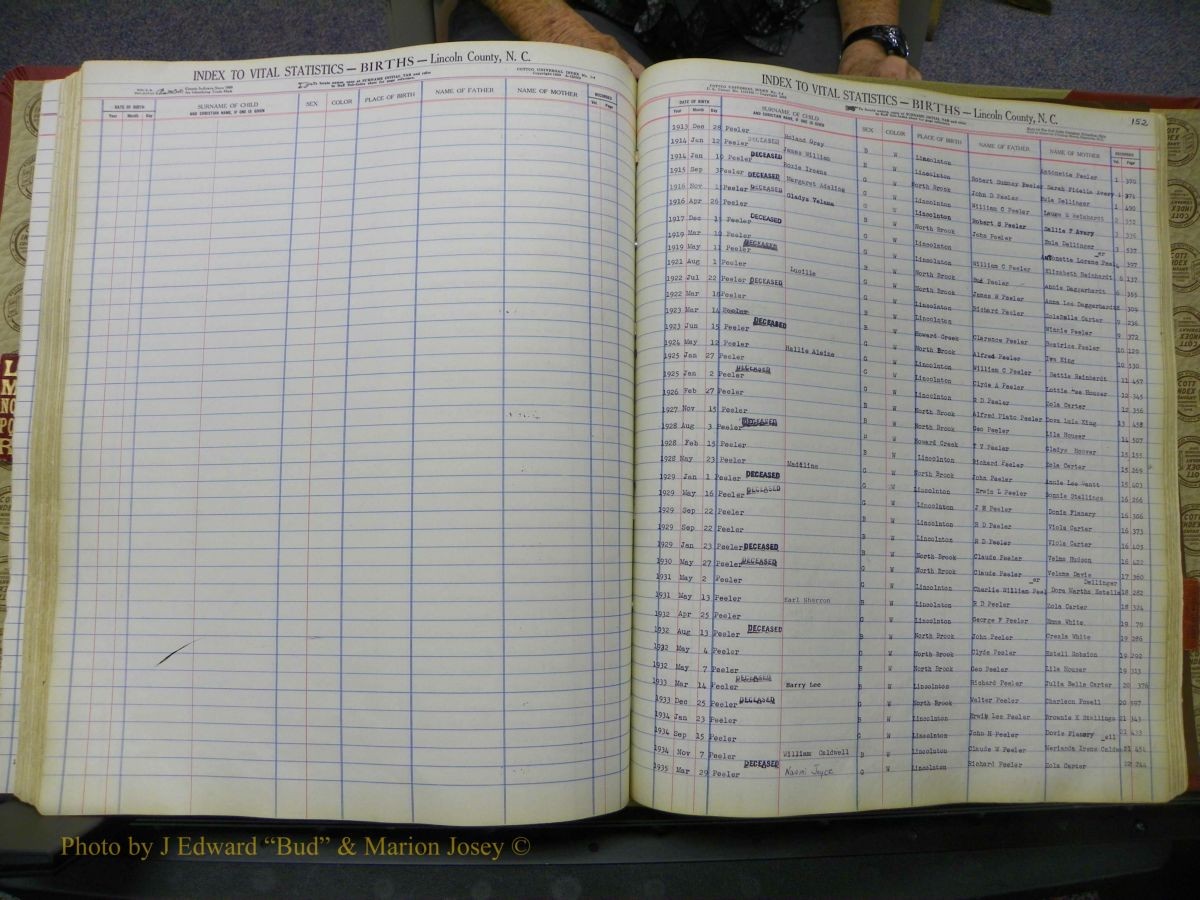 INDEX TO VITAL STATISTICS — BIRTHS — Lincoln County, N. C.
DATE OF BIRTH
Year Month Day
SURNAME OF CHILD
AND CHRISTIAN NAME, IF ONE IS GIVEN
SEX
COLOR
PLACE OF BIRTH
NAME OF FATHER
NAME OF MOTHER
RECORDED
Vol. Page
INDEX TO VITAL STATISTICS — BIRTHS — Lincoln County, N. C.
152
DATE OF BIRTH
Year Month Day
SURNAME OF CHILD
AND CHRISTIAN NAME, IF ONE IS GIVEN
SEX
COLOR
PLACE OF BIRTH
NAME OF FATHER
NAME OF MOTHER
RECORDED
Vol. Page
1913 Dec 28 Peeler Roland Gray B W Lincolnton Antonette Peeler 1 370
1914 Jun 12 Peeler DECEASED James William W Lincolnton Robert Sumner Peeler Sarah Fidelia Avery 1 371
1914 Jan 10 Peeler DECEASED G W North Brook John D Peeler Eula Dellinger 1 490
1915 Sep 3 Peeler DECEASED Margaret Adeline G W Lincolnton William C Peeler Laura E Reinhardt 2 332
1916 Nov 1 Peeler DECEASED Gladys Velama G W Lincolnton Robert S Peeler Sallie F Avery 2 336
1916 Apr 26 Peeler W North Brook John Peeler Eula Dellinger 3 537
1917 Dec 15 Peeler DECEASED G W Lincolnton 397
1919 Mar 10 Peeler DECEASED G W Lincolnton William C Peeler Elizabeth Reinhardt 6 137
1919 May 11 Peeler W North Brook Bud Peeler 355
1921 Aug 1 Peeler Lucille W North Brook James W Peeler 309
1922 Jul 22 Peeler DECEASED G W Lincolnton Richard Peeler Carter 9 236
1922 Mar 18 Peeler W Lincolnton Winnie Peeler 9 372
1923 Mar 14 Peeler DECEASED W Howard Creek Clarence Peeler Beatrice Peeler 10 120
1923 Jun 15 Peeler W North Brook Alfred Peeler Iva King 10 330
1924 May 12 Peeler Hallie Alsine G W Lincolnton William C Peeler Bettie Reinhardt 11 457
1925 Jan 27 Peeler DECEASED W Lincolnton Clyde A Peeler Lottie Houser 12 345
1925 Jan 2 Peeler G W Lincolnton R D Peeler Zola Carter 12 356
1926 Feb 27 Peeler G W North Brook Alfred Plato Peeler Dova Luis King 13 458
1927 Nov 15 Peeler DECEASED B W North Brook Geo Peeler Lila Houser 14 507
1928 Aug 3 Peeler W Howard Creek T V Peeler Gladys Hoover 15 155
1928 Feb 15 Peeler B W Lincolnton Richard Peeler Zola Carter 15 269
1928 May 23 Peeler Madeline G W North Brook John Peeler Annie Lee 15 403
1929 Jan 1 Peeler DECEASED G W Lincolnton Erwin L Peeler Bonnie Stallings 16 266
1929 May 16 Peeler DECEASED G W Lincolnton J H Peeler Donia Flanery 16 366
1929 Sep 22 Peeler B W Lincolnton R D Peeler Viola Carter 16 373
1929 Sep 22 Peeler B W Lincolnton R D Peeler Viola Carter 16 403
1929 Jan 23 Peeler DECEASED B W North Brook Claude Peeler Velma Hudson 16 422
1930 May 27 Peeler DECEASED G W North Brook Claude Peeler Velume Davis 17 360
1931 May 2 Peeler G W Lincolnton Charlie William Peeler Dora Martha Estelle Dellinger 18 282
1931 May 13 Peeler Earl Sherron B W Lincolnton R D Peeler Zola Carter 18 324
1932 Apr 25 Peeler G W Lincolnton George F Peeler Emma White 19 78
1932 Aug 13 Peeler DECEASED B W North Brook John Peeler White 19 286
1932 May 4 Peeler G W North Brook Clyde Peeler Estell 19 292
1932 May 7 Peeler B W North Brook Geo Peeler Lila Houser 19 313
1933 Mar 14 Peeler DECEASED Harry Lee B W Lincolnton Richard Peeler Julia Belle Carter 20 376
1933 Dec 25 Peeler DECEASED G W North Brook Walter Peeler Charleen Powell 20 597
1934 Jan 23 Peeler B W Lincolnton Erwin Lee Peeler Brownie K Stallings 21 343
1934 Sep 15 Peeler G W Lincolnton John H Peeler Dovie Flanery 21 433
1934 Nov 7 Peeler William Caldwell B W Lincolnton Claude W Peeler 21 454
1935 Mar 29 Peeler DECEASED Naomi Joyce G W Lincolnton Richard Peeler Zola Carter 22 244
Photo by J Edward “Bud” & Marion Josey ©